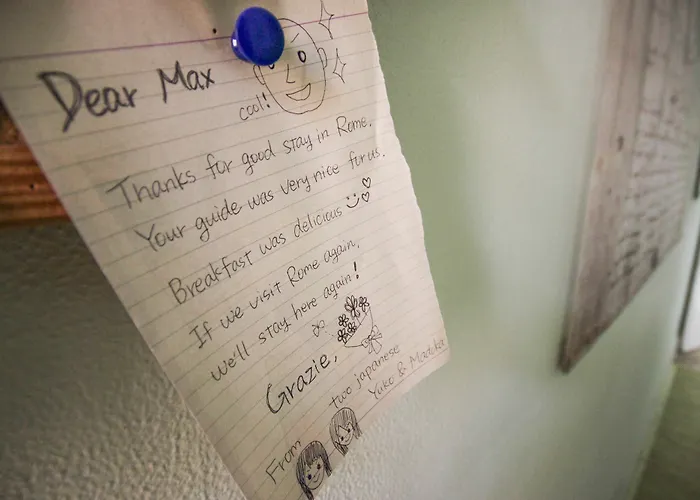 Dear Max
cool!
Thanks for good stay in Rome.
Your guide was very nice for us.
Breakfast was delicious
If we visit Rome again,
we'll stay here again!
Grazie,
From two japanese
Yuko & Madoka